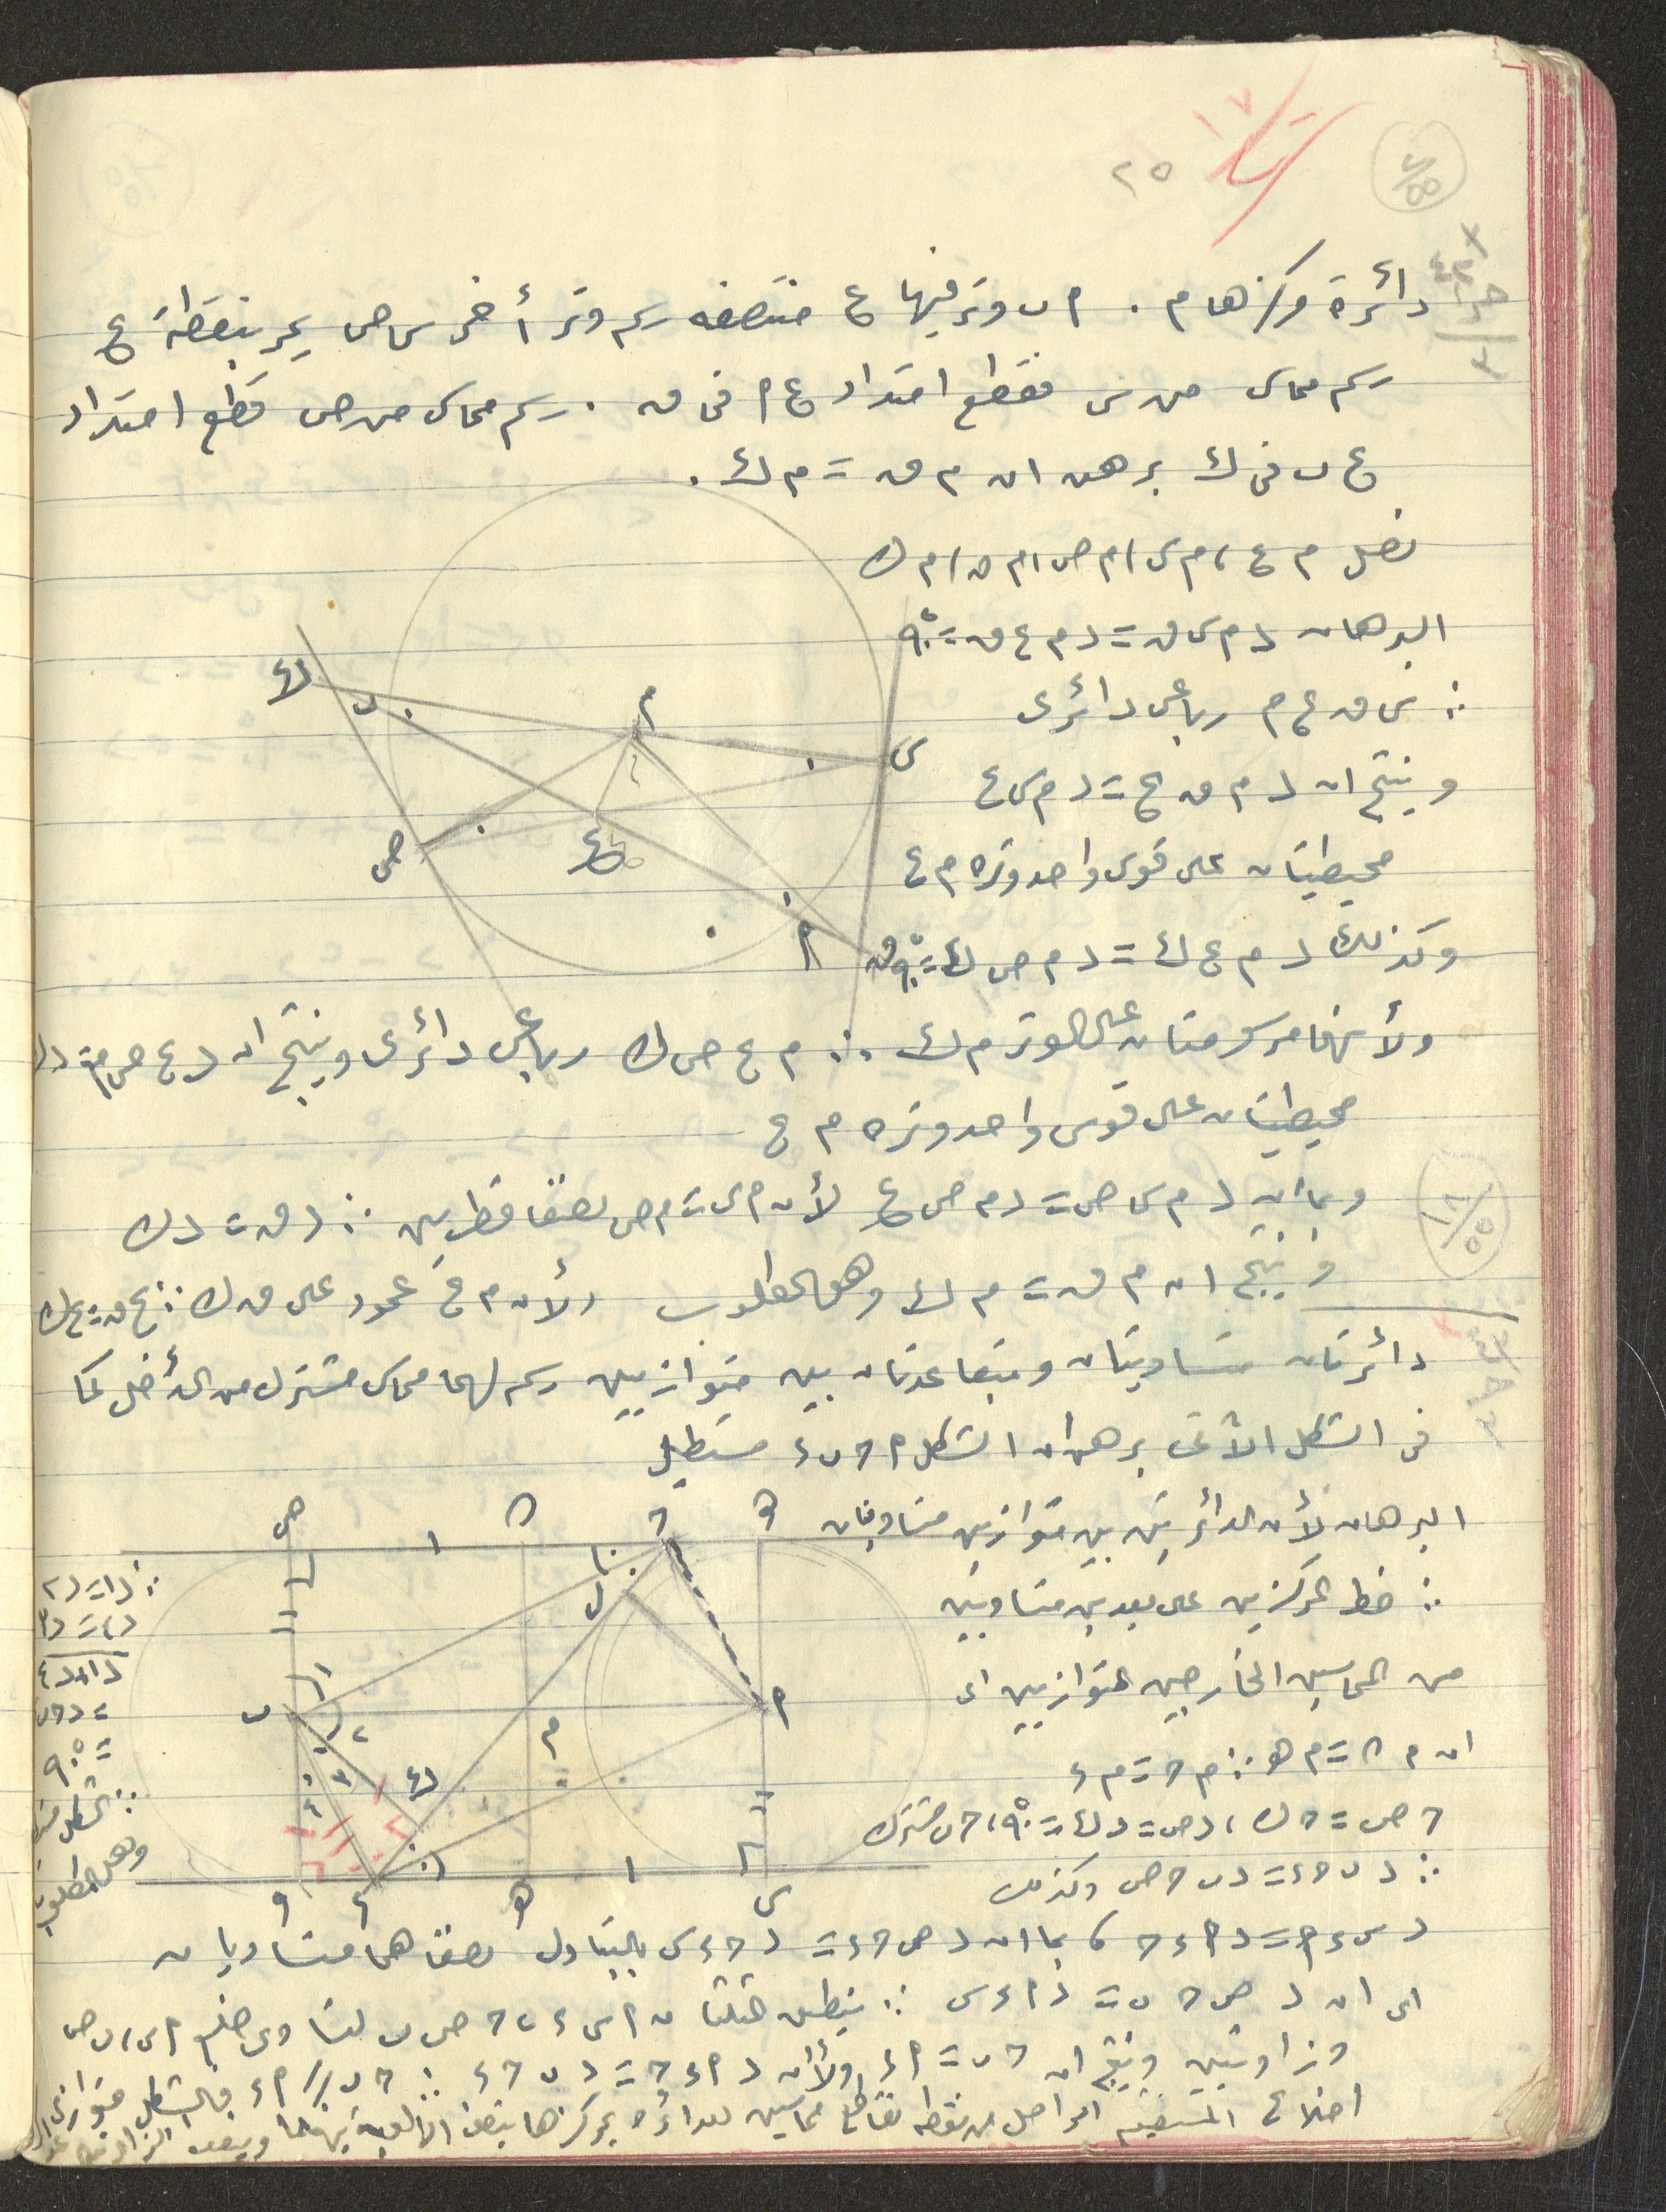 ٢٥
دائرة مركزها م . ا ب وتر فيها ع منتصفه رسم وتر أخر س ص يمر بنقطة ع
رسم مماس من س فقطع امتداد ع ا فى ن . رسم مماس من ص قطع امتداد
ع ب فى ك برهن ان م ن = م ك .
نصل م ع ، م س ، م ص ، م ن ، م ك
البرهان د م س ن = د م ع ن = ٩٠°
∴ س ن ع م رباعى دائرى
وينتج ان د م ن ع = د م س ع
محيطيتان على قوس واحد وتره م ع
وكذلك د م ع ك = د م ص ك = ٩٠°
ولأنهما مرسومتان على الوتر م ك ∴ م ع ص ك رباعى دائرى وينتج ان د ع ص م = د ك
محيطيتان على قوس واحد وتره م ع
وبما ان د م س ص = د م ص ع لأن م س = م ص نصفا قطرين ∴ د ن = د ك
وينتج ان م ن = م ك وهو المطلوب ولأن م ع عمود على ن ك ∴ ع ن = ع ك
ك
ب
م
س
ص
ع
ا
ن
دائرتان متساويتان ومتباعدتان بين متوازيين رسم لهما مماس مشترك من الداخل كما
فى الشكل الأتى برهن ان الشكل ا ح ب ء مستطيل
البرهان لأن الدائرتين بين متوازيين متساويتان
∴ خط المركزين على بعدين متساويين
من المماسين الخارجيين المتوازيين اى
ان م ن = م هـ ∴ م ح = م ء
ح ص = ح ك ، د ص = د ك = ٩٠° ، ح ب مشترك
∴ د ب ح ء = د ب ح ص وكذلك
د س ء ا = د ا ء ح ، بما ان د ص ح ء = د ح ء س بالتبادل نصفاهما متساويان
اى ان د ص ح ب = د ا ء س ∴ ينطبق المثلثان ا س ء ، ح ص ب لتساوى ضلع ا س ، ب ص
وزاويتين وينتج ان ح ب = ا ء ولأن د ا ء ح = د ب ح ء ∴ ح ب // ا ء فالشكل متوازى
اضلاع المستقيم الواصل من نقطة تقاطع مماسين لدائرة بمركزها ينصف الزاوية بينهما
ص
ح
ل
ب
م
ا
ك
و
ء
هـ
س
∴ د١ = د٢
د٤ = د٣
= ٩٠°
∴ الشكل
وهو المطلوب